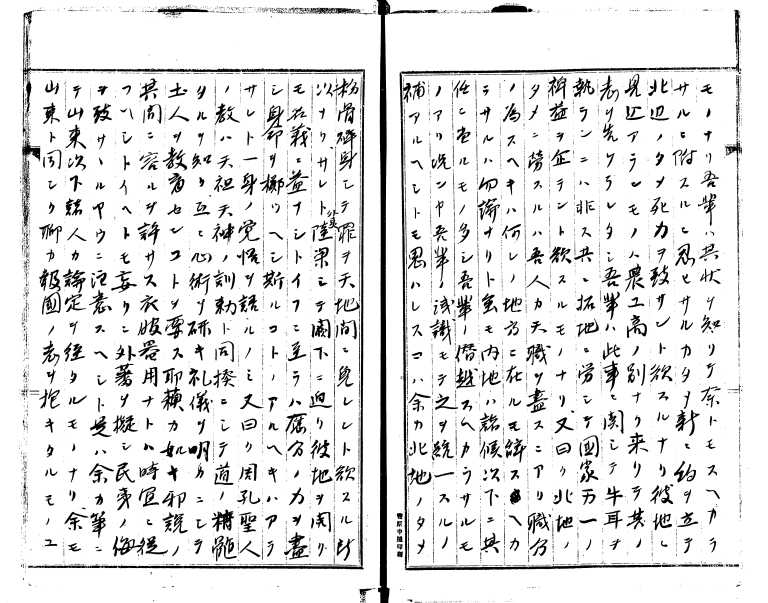 モノナリ吾輩ハ其状ヲ知リテ奈トモスヘカラ
サルニ附スルニ忍ヒサルカタメ新ニ約ヲ立テ
北辺ノタメ死力ヲ致サント欲スルナリ彼地ニ
見込アランモノハ農工商ノ別ナク来リテ其ノ
志ヲ先ケラレタシ吾輩ハ此事ニ関シテ牛耳ヲ
執ランニハ非ス共ニ拓地ニ労シテ国家万一ノ
裨益ヲ企テント欲スルモノナリ又曰ク北地ノ
タメニ労スルハ吾人カ天職ヲ盡スニアリ職分
ノ為スヘキハ何レノ地方ニ在ルモ辞スヘカ
ラサルハ勿論ナリト虽モ内地ハ諸候次下ニ其
任ニ当ルモノ多シ吾輩ノ僭越スヘカラサルモ
ノアリ况ンヤ吾輩ノ浅識モテ之ヲ統一スルノ
補アルヘシトモ思ハレスコハ余カ北地ノタメ
粉骨砕身シテ罪ヲ天地間ニ免レント欲スル所
以ナリサレト陸梁シテ闕下ニ迫リ彼地ヲ開リ
モ名義ニ益ナシトイフニ至ラハ應分ノ力ヲ盡
シ身命ヲ擲ツヘシ斯ルコトノアルヘキハア
サレト一身ノ覚悟ヲ語ルノミ又曰ク周孔聖人
ノ教ハ天祖天神ノ訓勅ト同揆ニシテ道ノ精髄
タルヲ知リ互ニ心術ヲ研キ礼儀ヲ明カニシテ
土人ヲ教育センコトヲ要ス耶蘇カ如キ邪説ノ
其間ニ容ルヲ許サス衣服器用ナトハ時宜ニ從
フヘシトイヘトモ妄リニ外著ヲ擬シ民弟ノ侮
ヲ致サヽルヤウニ注意スヘシト是ハ余カ筆ニ
テ山東次下諸人カ論定ヲ経タルモノナリ余モ
山東ト同シク聊カ報國ノ志ヲ抱キタルモノユ